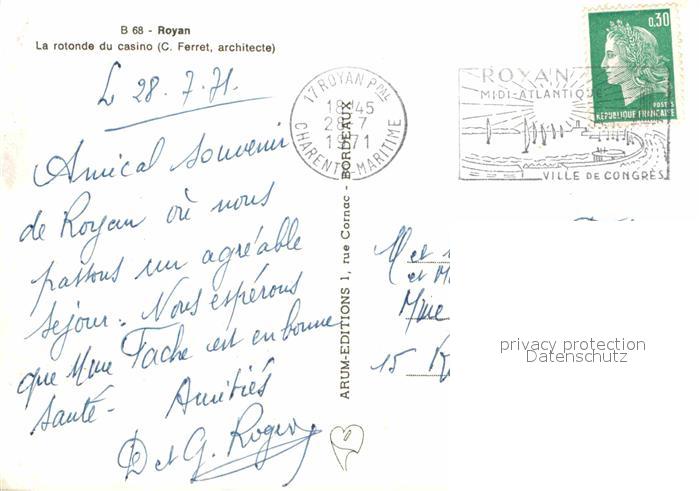 B 68 - Royan
La rotonde du casino (C. Ferret, architecte)
Le 28.7.71.
Amical souvenir
de Royan où nous
passons un agréable
séjour. Nous espérons
que Mme Tache est en bonne
santé - Amitiés
D et G. Roger
17 ROYAN PPAL
18H45
28-7
1971
CHARENTE-MARITIME
ARUM-EDITIONS 1, rue Cornac - BORDEAUX
ROYAN
MIDI-ATLANTIQUE
VILLE DE CONGRÈS
0,30
POSTES
REPUBLIQUE FRANÇAISE
M et
et M
Mme
15
privacy protection
Datenschutz